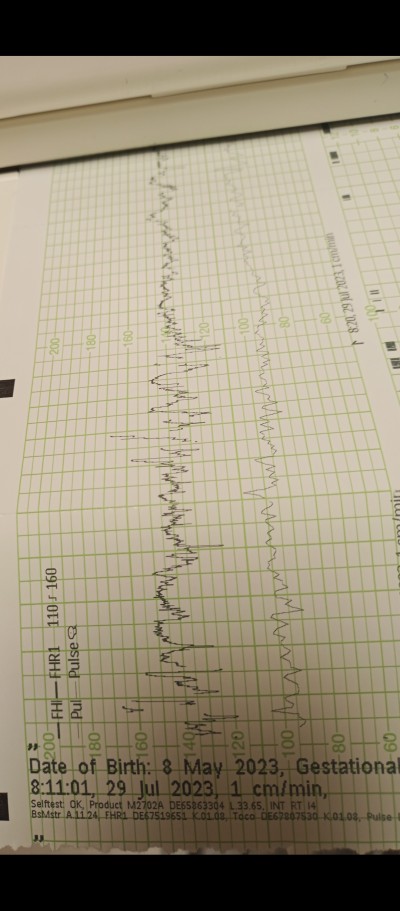 200 180 160 120 100 80 60
8:20, 29 Jul 2023, 1 cm/min
100
— FHI — FHR1 110 160
Pul Pulse
200 180 160 140 120 100 80 60
Date of Birth: 8 May 2023, Gestational
8:11:01, 29 Jul 2023, 1 cm/min,
Selftest: OK, Product M2702A DE65863304 L.33.65, INT RT 14
BsMstr A.11.24, FHR1 DE67519651 K.01.08, Toco DE67807530 K.01.08, Pulse